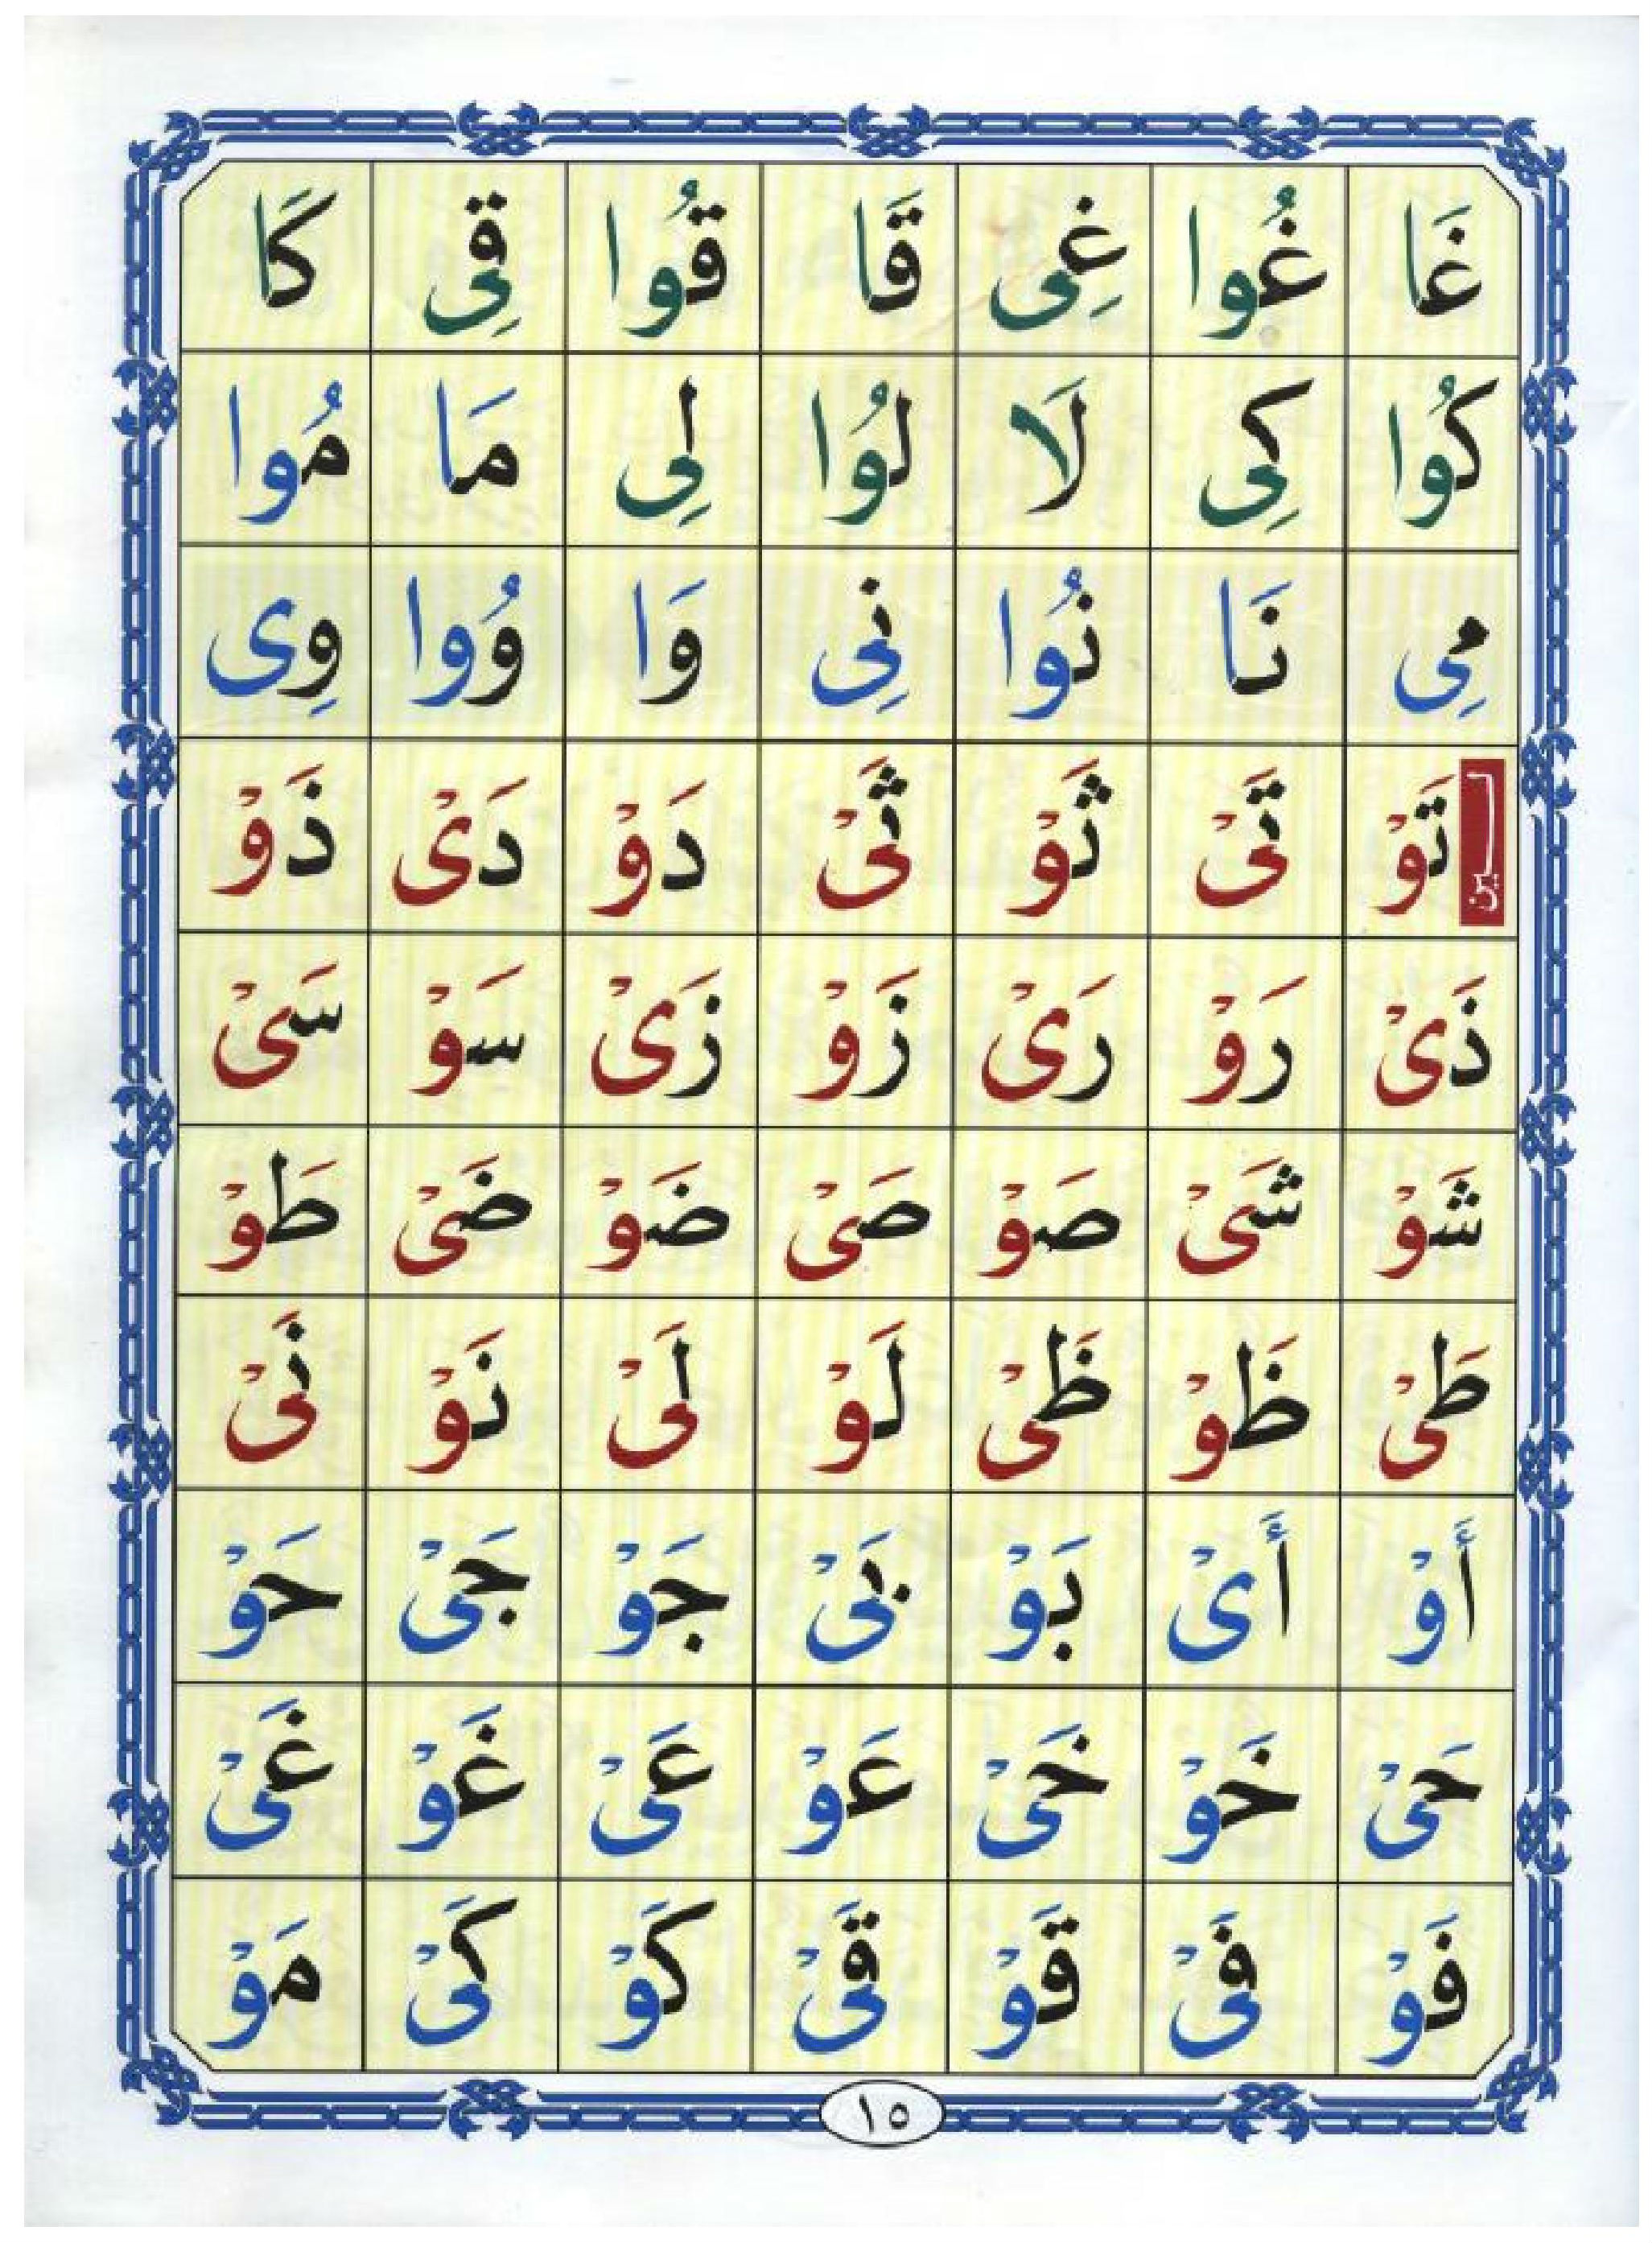 غَا غُوا غِى قَا قُوا قِى كَا
كُوا كِى لَا لُوا لِى مَا مُوا
مِى نَا نُوا نِى وَا وُوا وِى
لــين تَوْ تَىْ ثَوْ ثَىْ دَوْ دَىْ ذَوْ
ذَىْ رَوْ رَىْ زَوْ زَىْ سَوْ سَىْ
شَوْ شَىْ صَوْ صَىْ ضَوْ ضَىْ طَوْ
طَىْ ظَوْ ظَىْ لَوْ لَىْ نَوْ نَىْ
أَوْ أَىْ بَوْ بَىْ جَوْ جَىْ حَوْ
حَىْ خَوْ خَىْ عَوْ عَىْ غَوْ غَىْ
فَوْ فَىْ قَوْ قَىْ كَوْ كَىْ مَوْ
١٥